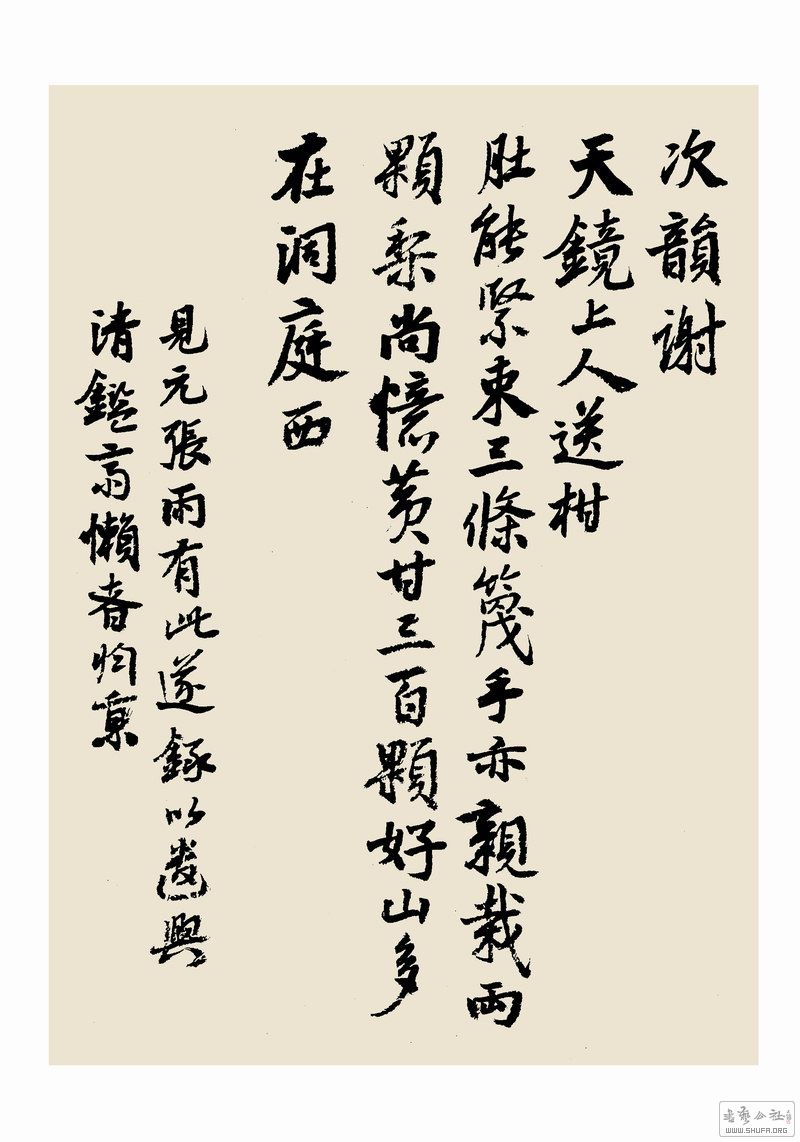 次韻謝
天鏡上人送柑
肚能緊束三條篾手亦親栽兩
顆梨尚憶黄甘三百顆好山多
在洞庭西
見元張雨有此遂録以遣興
清鑑齋懶者
書藝公社
WWW.SHUFA.ORG